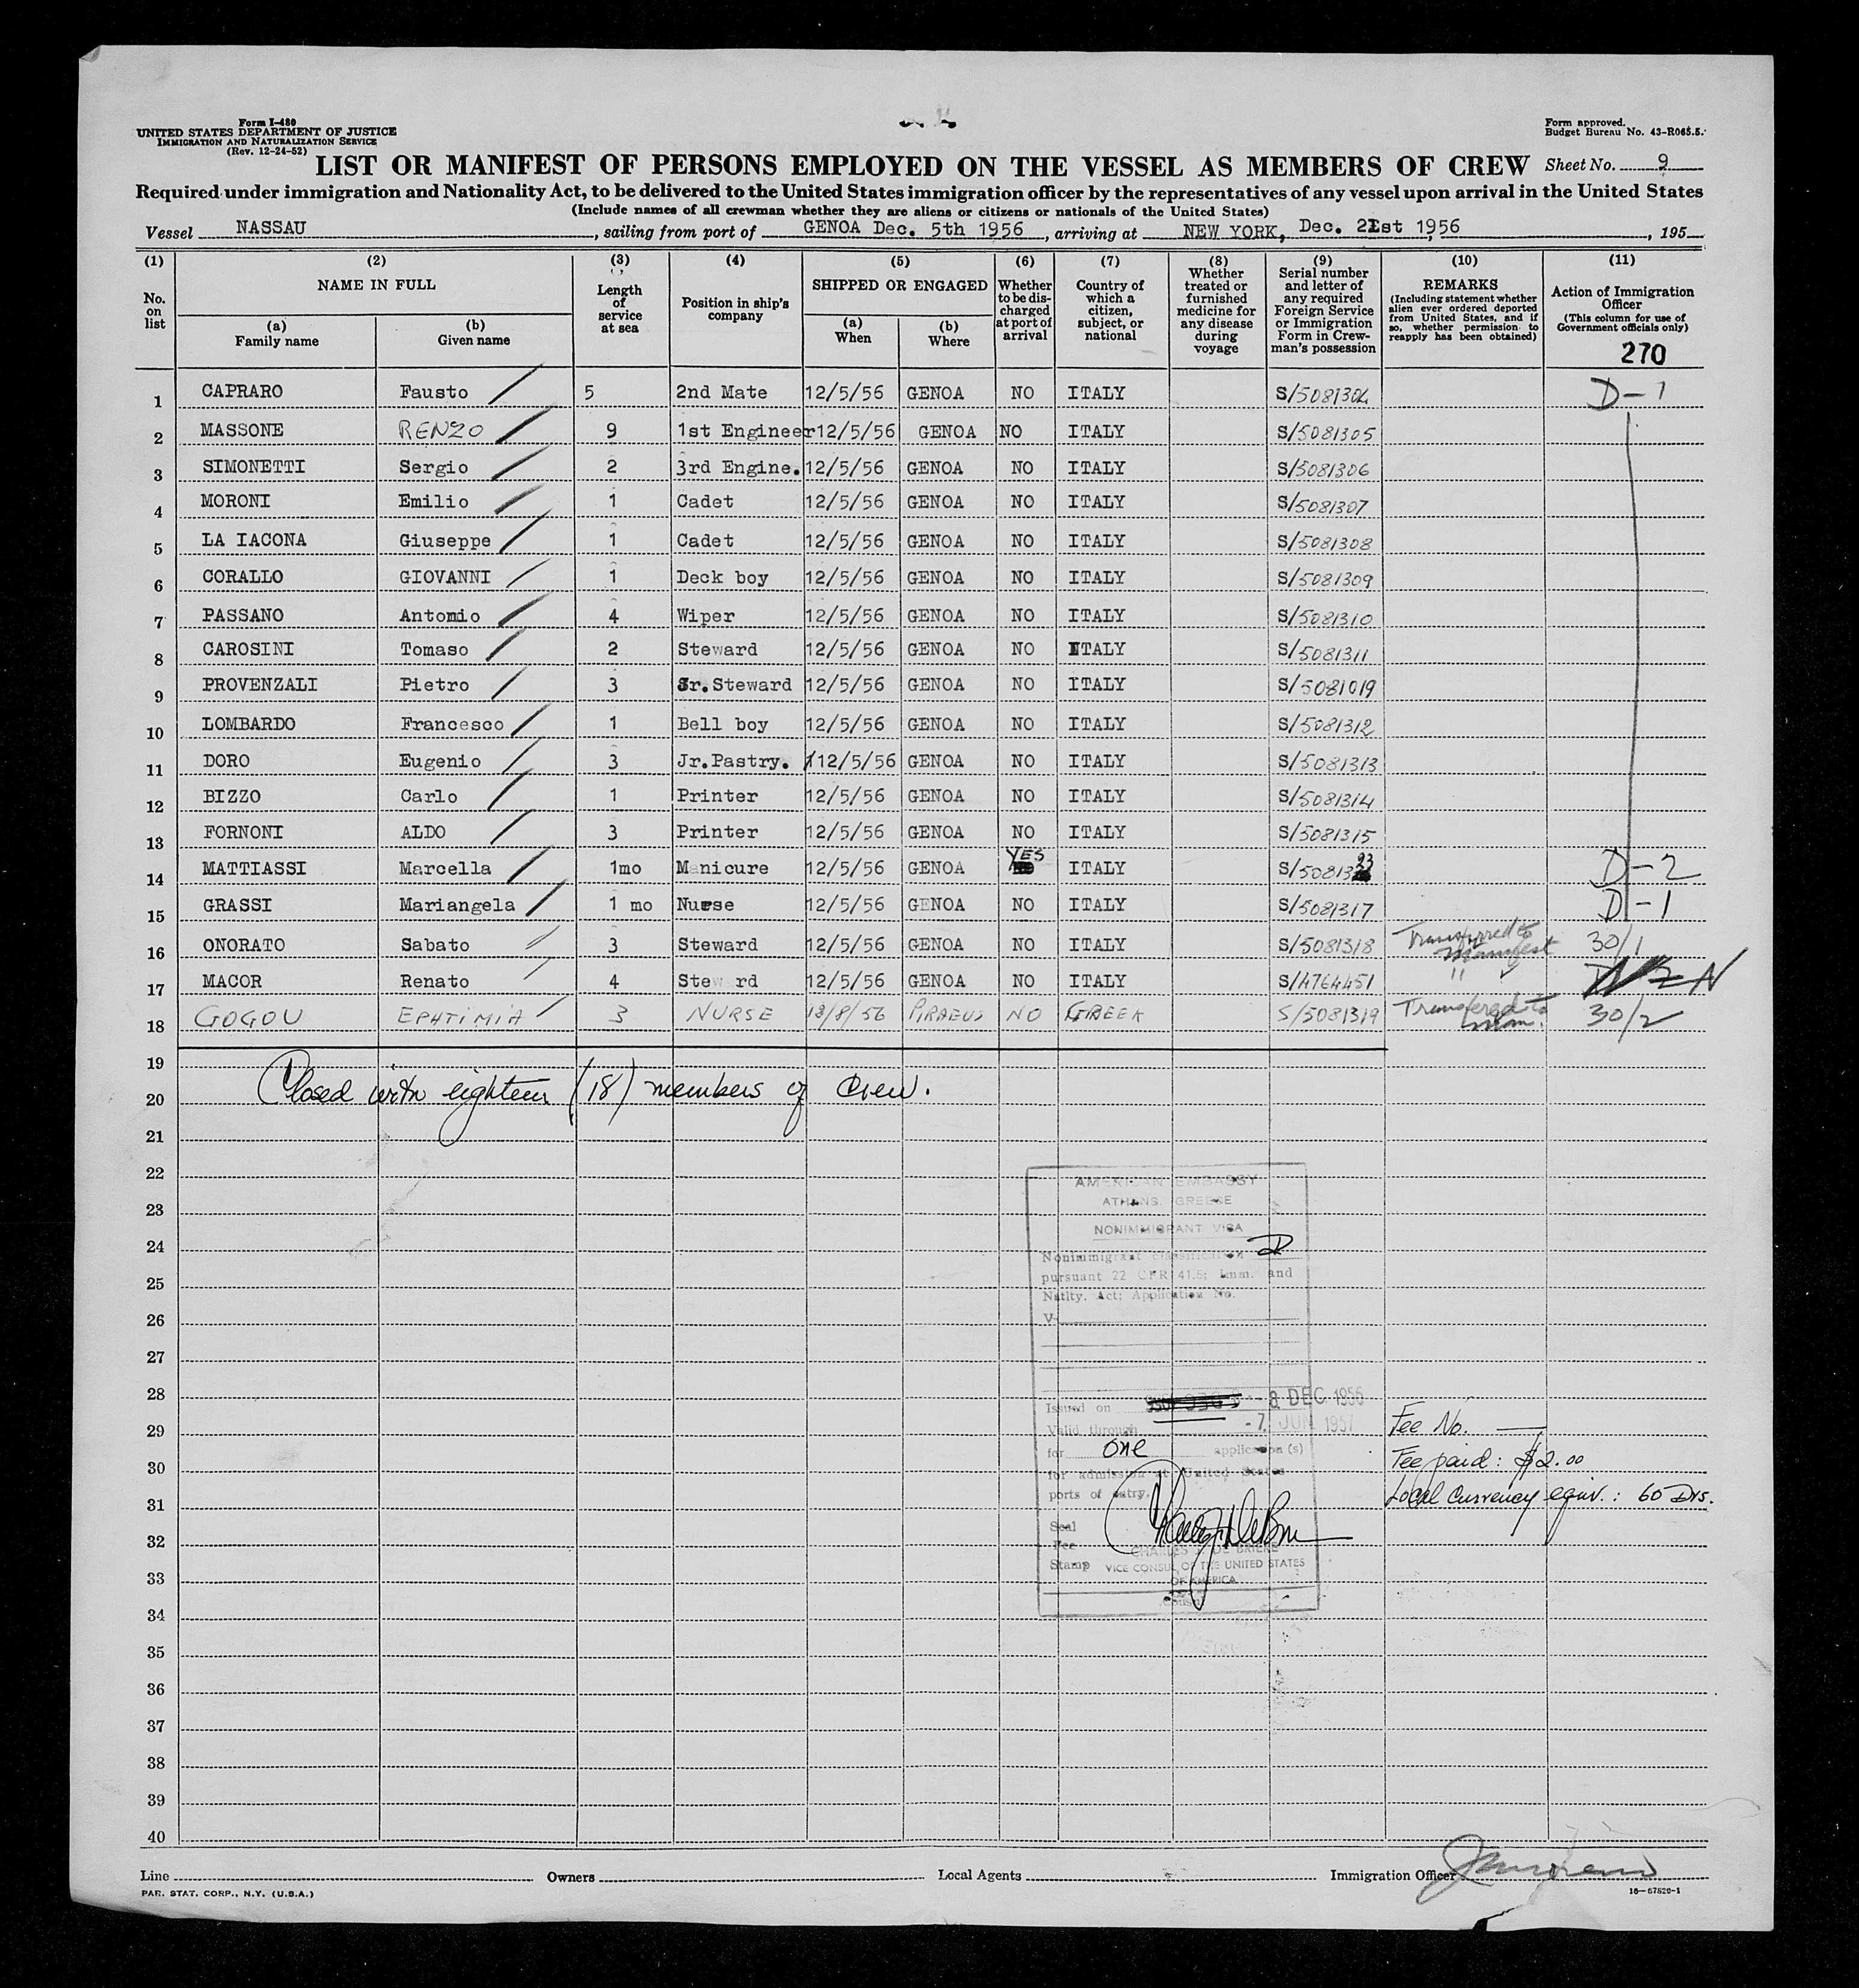 Form I-480
UNITED STATES DEPARTMENT OF JUSTICE
IMMIGRATION AND NATURALIZATION SERVICE
(Rev. 12-24-52)
Form approved.
Budget Bureau No. 43-R065.5.
LIST OR MANIFEST OF PERSONS EMPLOYED ON THE VESSEL AS MEMBERS OF CREW
Sheet No. 9
Required under immigration and Nationality Act, to be delivered to the United States immigration officer by the representatives of any vessel upon arrival in the United States
(Include names of all crewman whether they are aliens or citizens or nationals of the United States)
Vessel NASSAU, sailing from port of GENOA Dec. 5th 1956, arriving at NEW YORK, Dec. 21st 1956, 195
(1) (2) (3) (4) (5) (6) (7) (8) (9) (10) (11)
No. on list
NAME IN FULL
(a) Family name
(b) Given name
Length of service at sea
Position in ship's company
SHIPPED OR ENGAGED
(a) When
(b) Where
Whether to be discharged at port of arrival
Country of which a citizen, subject, or national
Whether treated or furnished medicine for any disease during voyage
Serial number and letter of any required Foreign Service or Immigration Form in Crewman's possession
REMARKS
(Including statement whether alien ever ordered deported from United States, and if so, whether permission to reapply has been obtained)
Action of Immigration Officer
(This column for use of Government officials only)
270
1 CAPRARO Fausto 5 2nd Mate 12/5/56 GENOA NO ITALY S/5081304 D-1
2 MASSONE RENZO 9 1st Engineer 12/5/56 GENOA NO ITALY S/5081305
3 SIMONETTI Sergio 2 3rd Engine. 12/5/56 GENOA NO ITALY S/5081306
4 MORONI Emilio 1 Cadet 12/5/56 GENOA NO ITALY S/5081307
5 LA IACONA Giuseppe 1 Cadet 12/5/56 GENOA NO ITALY S/5081308
6 CORALLO GIOVANNI 1 Deck boy 12/5/56 GENOA NO ITALY S/5081309
7 PASSANO Antomio 4 Wiper 12/5/56 GENOA NO ITALY S/5081310
8 CAROSINI Tomaso 2 Steward 12/5/56 GENOA NO ITALY S/5081311
9 PROVENZALI Pietro 3 Jr. Steward 12/5/56 GENOA NO ITALY S/5081019
10 LOMBARDO Francesco 1 Bell boy 12/5/56 GENOA NO ITALY S/5081312
11 DORO Eugenio 3 Jr.Pastry. 12/5/56 GENOA NO ITALY S/5081313
12 BIZZO Carlo 1 Printer 12/5/56 GENOA NO ITALY S/5081314
13 FORNONI ALDO 3 Printer 12/5/56 GENOA NO ITALY S/5081315
14 MATTIASSI Marcella 1mo Manicure 12/5/56 GENOA YES ITALY S/5081323 D-2
15 GRASSI Mariangela 1 mo Nurse 12/5/56 GENOA NO ITALY S/5081317 D-1
16 ONORATO Sabato 3 Steward 12/5/56 GENOA NO ITALY S/5081318 Transferred to Manifest 30/1
17 MACOR Renato 4 Stew rd 12/5/56 GENOA NO ITALY S/4764451 " N
18 GOGOU EPHTIMIA 3 NURSE 12/8/56 PIRAEUS NO GREEK S/5081319 Transferred to man. 30/2
19
20 Closed with eighteen (18) members of crew.
21
22
AMERICAN EMBASSY
23
ATHENS, GREECE
NONIMMIGRANT VISA
24
Nonimmigrant classification D
25
pursuant 22 CFR 41.5; Imm. and
Natlty. Act; Application No.
26
V-
27
28
Issued on 8 DEC 1956
29
Valid through -7 JUN 1957
Fee No. —
for one application (s)
30
Fee paid: $2.00
for admission at United States
31
ports of entry.
Local Currency equiv.: 60 Drs.
32
Seal
Fee
Stamp
CHARLES DE BRIERE
VICE CONSUL OF THE UNITED STATES
33
OF AMERICA
Consul
34
35
36
37
38
39
40
Line Owners Local Agents Immigration Officer
PAR. STAT. CORP., N.Y. (U.S.A.)
16-67529-1